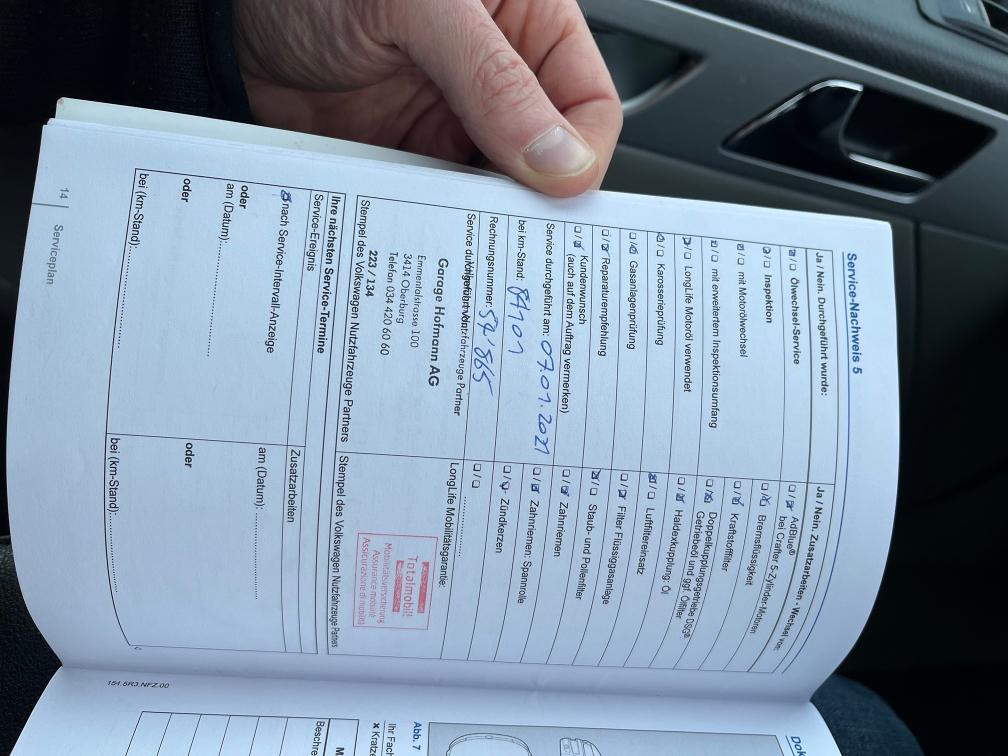 Service-Nachweis 5
Ja / Nein. Durchgeführt wurde:
☒/☐ Ölwechsel-Service
☒/☐ Inspektion
☒/☐ mit Motorölwechsel
☒/☐ mit erweitertem Inspektionsumfang
☒/☐ LongLife Motoröl verwendet
☒/☐ Karosserieprüfung
☐/☒ Gasanlagenprüfung
☐/☒ Reparaturempfehlung
☐/☒ Kundenwunsch
(auch auf dem Auftrag vermerken)
Service durchgeführt am: 07.01.2021
bei km-Stand: 84101
Rechnungsnummer: 54'865
Service durchgeführt von:
Garage Hofmann AG
Emmentalstrasse 100
3414 Oberburg
Telefon 034 420 60 60
223 / 134
Stempel des Volkswagen Nutzfahrzeuge Partners
Ja / Nein. Zusatzarbeiten - Wechsel von:
☐/☒ AdBlue®
bei Crafter 5-Zylinder-Motoren
☐/☒ Bremsflüssigkeit
☐/☒ Kraftstofffilter
☐/☒ Doppelkupplungsgetriebe DSG®:
Getriebeöl und ggf. Ölfilter
☐/☒ Haldexkupplung: Öl
☒/☐ Luftfiltereinsatz
☐/☒ Filter Flüssiggasanlage
☒/☐ Staub- und Pollenfilter
☐/☒ Zahnriemen
☐/☒ Zahnriemen: Spannrolle
☐/☒ Zündkerzen
☐/☐
LongLife Mobilitätsgarantie:
Totalmobil!
Mobilitätsversicherung
Assurance mobilité
Assicurazione di mobilità
Stempel des Volkswagen Nutzfahrzeuge Partners
Ihre nächsten Service-Termine
Service-Ereignis
☒ nach Service-Intervall-Anzeige
oder
am (Datum):
oder
bei (km-Stand):
Zusatzarbeiten
am (Datum):
oder
bei (km-Stand):
14 | Serviceplan
151.5R3.NFZ.00
Abb. 7